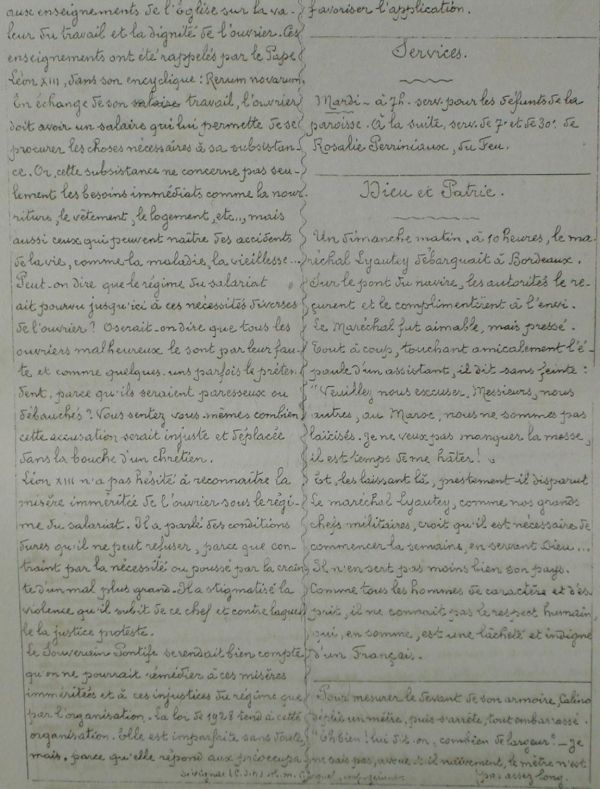 aux enseignements de l'Église sur la va-
leur du travail et la dignité de l'ouvrier. Ces
enseignements ont été rappelés par le Pape
Léon XIII, dans son encyclique: Rerum novarum.
En échange de son salaire travail, l'ouvrier
doit avoir un salaire qui lui permette de se
procurer les choses nécessaires à sa subsistan-
ce. Or, cette subsistance ne concerne pas seu-
lement les besoins immédiats comme la nour
riture, le vêtement, le logement, etc..., mais
aussi ceux qui peuvent naître des accidents
de la vie, comme la maladie, la vieillesse...
Peut-on dire que le régime du salariat
ait pourvu jusqu'ici à ces nécessités diverses
de l'ouvrier? Oserait-on dire que tous les
ouvriers malheureux le sont par leur fau-
te et comme quelques-uns parfois le préten-
dent, parce qu'ils seraient paresseux ou
débauchés? Vous sentez vous-mêmes combien
cette accusation serait injuste et déplacée
dans la bouche d'un chrétien.
Léon XIII n'a pas hésité à reconnaître la
misère imméritée de l'ouvrier sous le régi-
me du salariat. Il a parlé des conditions
dures qu'il ne peut refuser, parce que con-
traint par la nécessité ou poussé par la crain
te d'un mal plus grand. Il a stigmatisé la
violence qu'il subit de ce chef et contre laquel
le la justice proteste.
Le Souverain Pontife se rendait bien compte
qu'on ne pourrait remédier à ces misères
imméritées et à ces injustices du régime que
par l'organisation. La loi de 1928 tend à cette
organisation. Elle est imparfaite sans doute
mais, parce qu'elle répond aux préoccupa
favoriser l'application.
Services.
Mardi - à 7h. serv. pour les défunts de la
paroisse. À la suite, serv. de 7e et de 30e de
Rosalie Perriniaux, du Feu.
Dieu et Patrie.
Un dimanche matin, à 10 heures, le ma-
réchal Lyautey débarquait à Bordeaux.
Sur le pont du navire, les autorités le re-
çurent et le complimentèrent à l'envi.
Le Maréchal fut aimable, mais pressé.
Tout à coup, touchant amicalement l'é-
paule d'un assistant, il dit sans feinte:
"Veuillez nous excuser, Messieurs, nous
autres, au Maroc, nous ne sommes pas
laïcisés. Je ne veux pas manquer la messe,
il est temps de me hâter!
Et, les laissant là, prestement il disparut
Le maréchal Lyautey, comme nos grands
chefs militaires, croit qu'il est nécessaire de
commencer la semaine, en servant Dieu...
Il n'en sert pas moins bien son pays.
Comme tous les hommes de caractère et d'es-
prit, il ne connaît pas le respect humain,
qui, en somme, est une lâcheté et indigne
d'un Français.
Pour mesurer le devant de son armoire, Calino
déplie un mètre, puis s'arrête, tout embarrassé.
"Eh bien! lui dit-on, combien de largeur? - Je
ne sais pas, avoue-t-il naïvement, le mètre n'est
pas assez long.